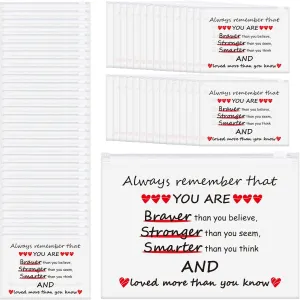 Always remember that
YOU ARE
Braver than you believe,
Stronger than you seem,
Smarter than you think
AND
loved more than you know
Always remember that
YOU ARE
Braver than you believe,
Stronger than you seem,
Smarter than you think
AND
loved more than you know
Always remember that
YOU ARE
Braver than you believe,
Stronger than you seem,
Smarter than you think
AND
loved more than you know
Always remember that
YOU ARE
Braver than you believe,
Stronger than you seem,
Smarter than you think
AND
loved more than you know